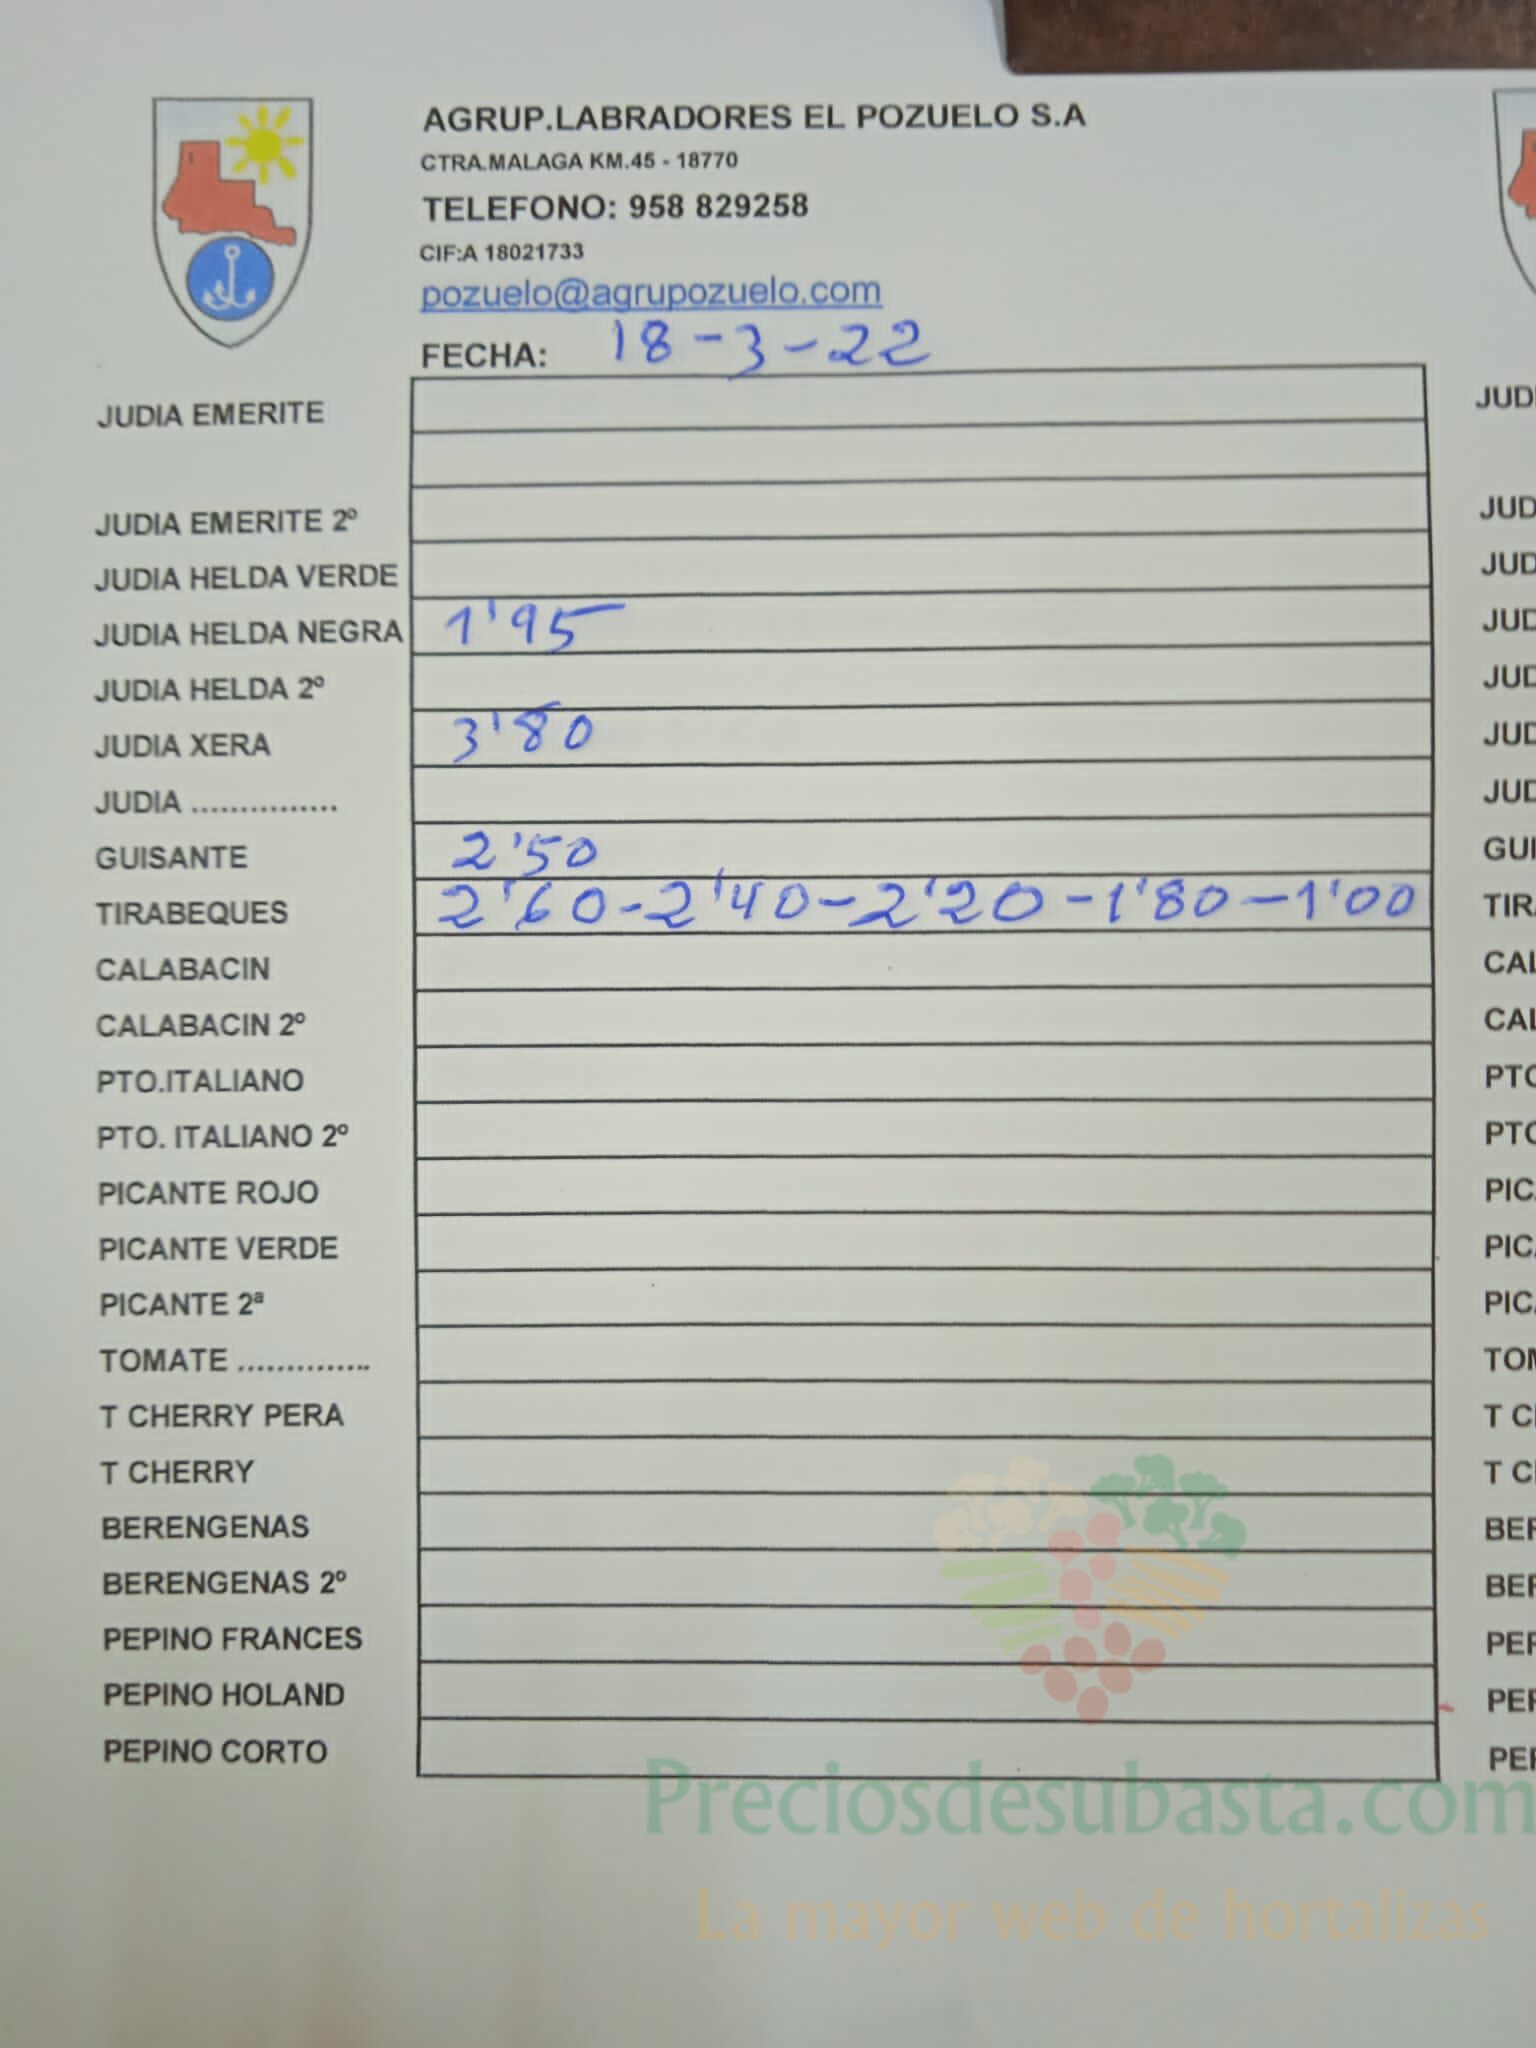 AGRUP.LABRADORES EL POZUELO S.A
CTRA.MALAGA KM.45 - 18770
TELEFONO: 958 829258
CIF:A 18021733
pozuelo@agrupozuelo.com
FECHA: 18-3-22
JUDIA EMERITE
JUDIA EMERITE 2º
JUDIA HELDA VERDE
JUDIA HELDA NEGRA 1'95
JUDIA HELDA 2º
JUDIA XERA 3'80
JUDIA ...............
GUISANTE 2'50
TIRABEQUES 2'60-2'40-2'20-1'80-1'00
CALABACIN
CALABACIN 2º
PTO.ITALIANO
PTO. ITALIANO 2º
PICANTE ROJO
PICANTE VERDE
PICANTE 2ª
TOMATE ..............
T CHERRY PERA
T CHERRY
BERENGENAS
BERENGENAS 2º
PEPINO FRANCES
PEPINO HOLAND
PEPINO CORTO
Preciosdesubasta.com
La mayor web de hortalizas